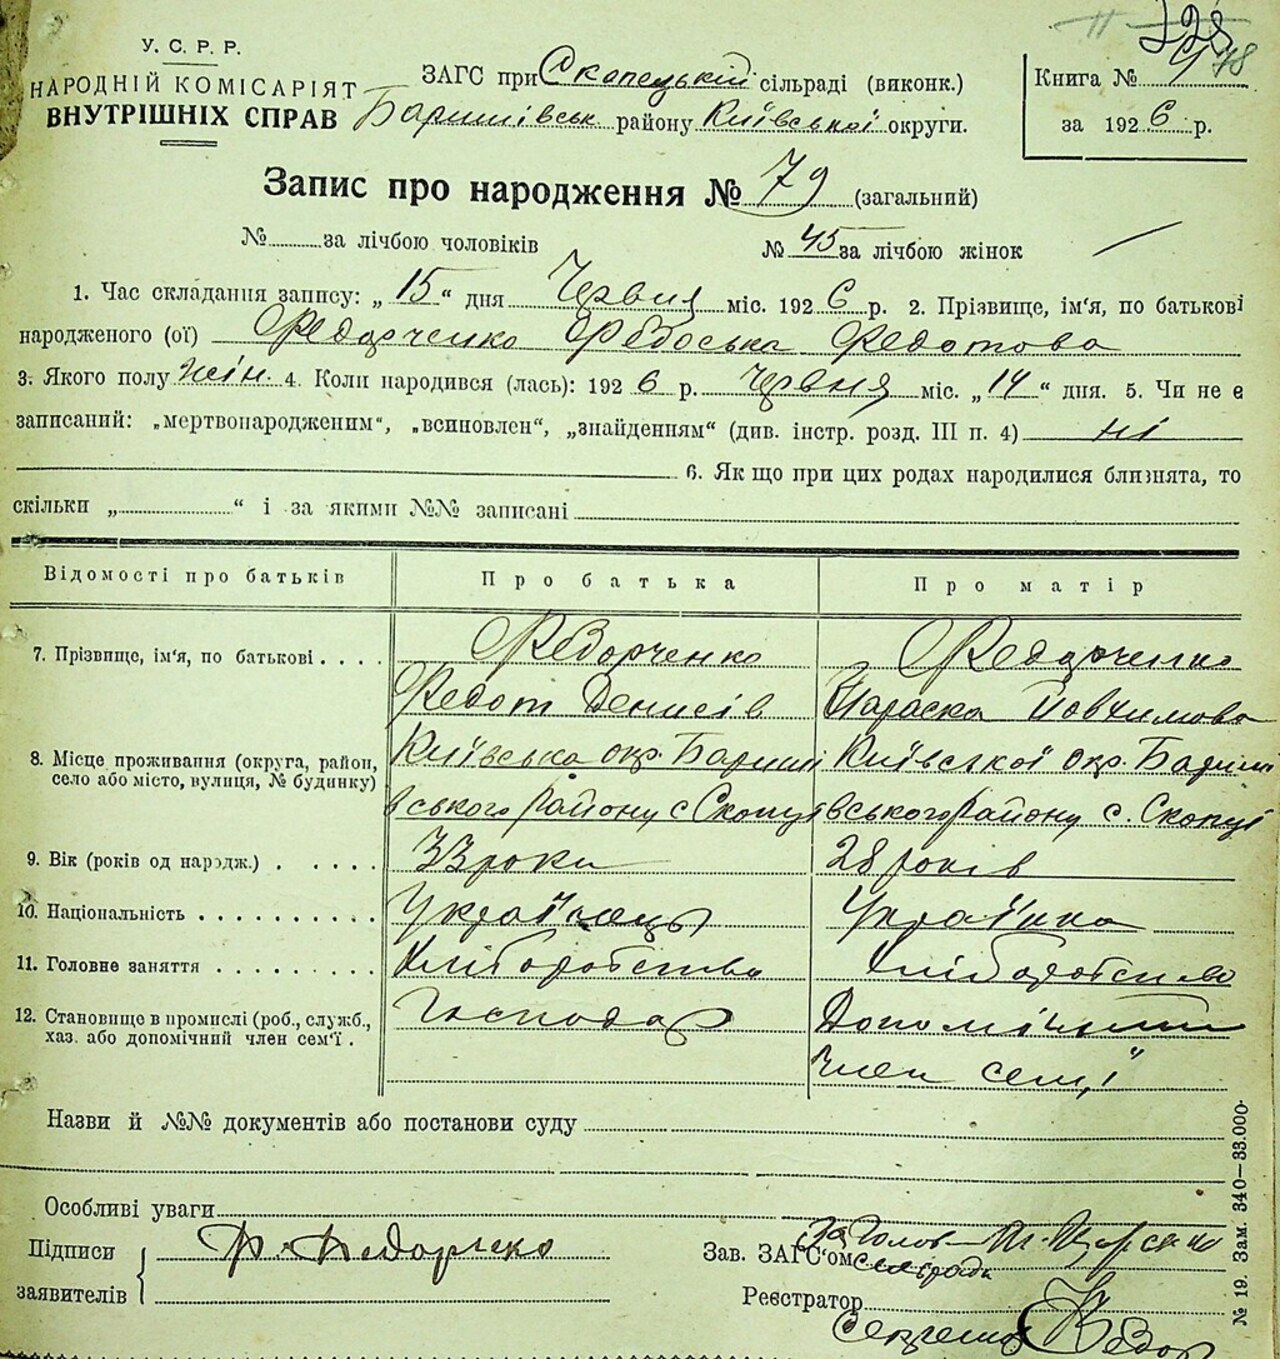 У. С. Р. Р.
НАРОДНІЙ КОМІСАРІЯТ
ВНУТРІШНІХ СПРАВ
ЗАГС при Скопецькій сільраді (виконк.)
Баришівськ. району Київської округи.
Книга №
за 1926 р.
Запис про народження № 79 (загальний)
№ за лічбою чоловіків № 45 за лічбою жінок
1. Час складання запису: „ 15 “ дня Червня міс. 1926 р. 2. Прізвище, ім'я, по батькові
народженого (ої) Федорченко Федоська Федотова
3. Якого полу жін. 4. Коли народився (лась): 1926 р. червня міс. „ 14 “ дня. 5. Чи не є
записаний: „мертвонародженим“, „всиновлен“, „знайденням“ (див. інстр. розд. III п. 4) ні
6. Як що при цих родах народилися близнята, то
скільки „ “ і за якими №№ записані
Відомості про батьків Про батька Про матір
7. Прізвище, ім'я, по батькові . . . . Федорченко Федорченко
Федот Денисів Параска Йовхимова
8. Місце проживання (округа, район, Київська окр. Бариші Київської окр. Бариші
село або місто, вулиця, № будинку) вського району с Скопці вського району с. Скопці
9. Вік (років од народж.) . . . . . 33 роки 28 років
10. Національність . . . . . . . . . . Українець Українка
11. Головне заняття . . . . . . . . . Хліборобство Хліборобство
12. Становище в промислі (роб., служб., Господар Допомічний
хаз. або допомічний член сем'ї . член семʼї
Назви й №№ документів або постанови суду
Особливі уваги
Підписи Ф. Федорченко
заявителів
Зав. ЗАГС'ом За Голов
сельради
Реєстратор
Секретар
№ 19. Зам. 340—33.000.